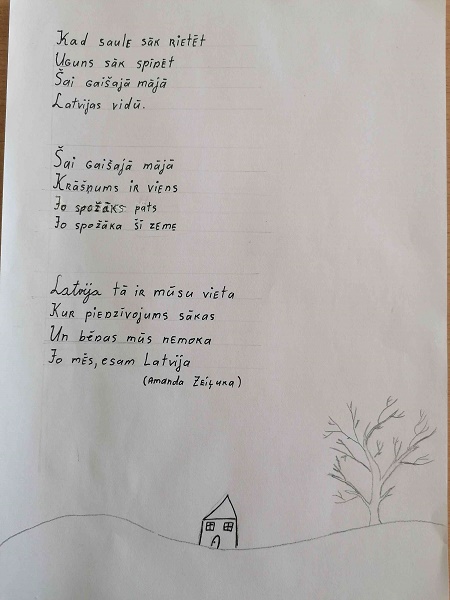 Kad saule sāk rietēt
Uguns sāk spīdēt
Šai gaišajā mājā
Latvijas vidū.
Šai gaišajā mājā
Krāšņums ir viens
Jo spožāks pats
Jo spožāka šī zeme
Latvija tā ir mūsu vieta
Kur piedzīvojums sākas
Un bēdas mūs nemoka
Jo mēs, esam Latvija
(Amanda Zeiļuka)